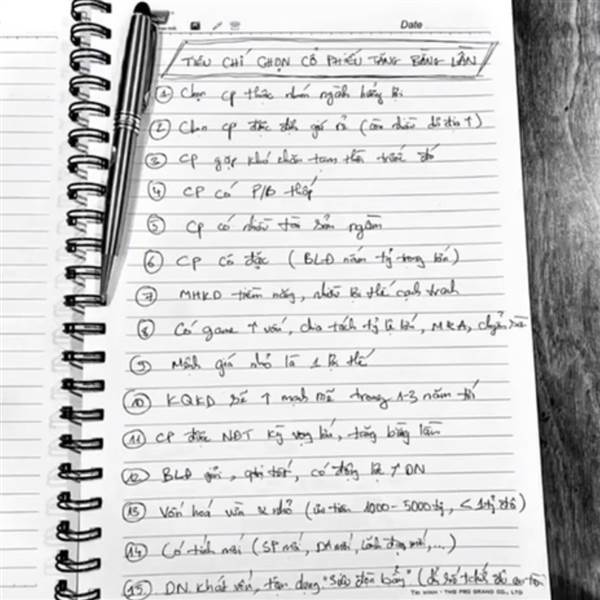 Date
TIÊU CHÍ CHỌN CỔ PHIẾU TĂNG BẰNG LẦN
① Chọn CP thuộc nhóm ngành
② Chọn CP được định giá rẻ (còn nhiều dư địa ↑)
③ CP gặp khó khăn tạm thời trước đó
④ CP có P/B thấp
⑤ CP có nhiều tài sản ngầm
⑥ CP cô đặc (BLĐ nắm tỷ trọng lớn)
⑦ MHKD tiềm năng, nhiều lợi thế cạnh tranh
⑧ Có game ↑ vốn, chia tách tỷ lệ lớn, M&A, chuyển sàn
⑨ Mệnh giá nhỏ là 1 lợi thế
⑩ KQKD sẽ ↑ mạnh mẽ trong 1-3 năm tới
⑪ CP được NĐT kỳ vọng lớn, tăng bằng lần
⑫ BLĐ giỏi, quản trị tốt, có động lực ↑ DN
⑬ Vốn hoá vừa & nhỏ (ưu tiên 1000 - 5000 tỷ, ≤ 1 tỷ đô)
⑭ Có tính mới (SP mới, DA mới, lãnh đạo mới,...)
⑮ DN khát vốn, tận dụng "Siêu đòn bẩy"
THE PRO BRAND CO., LTD